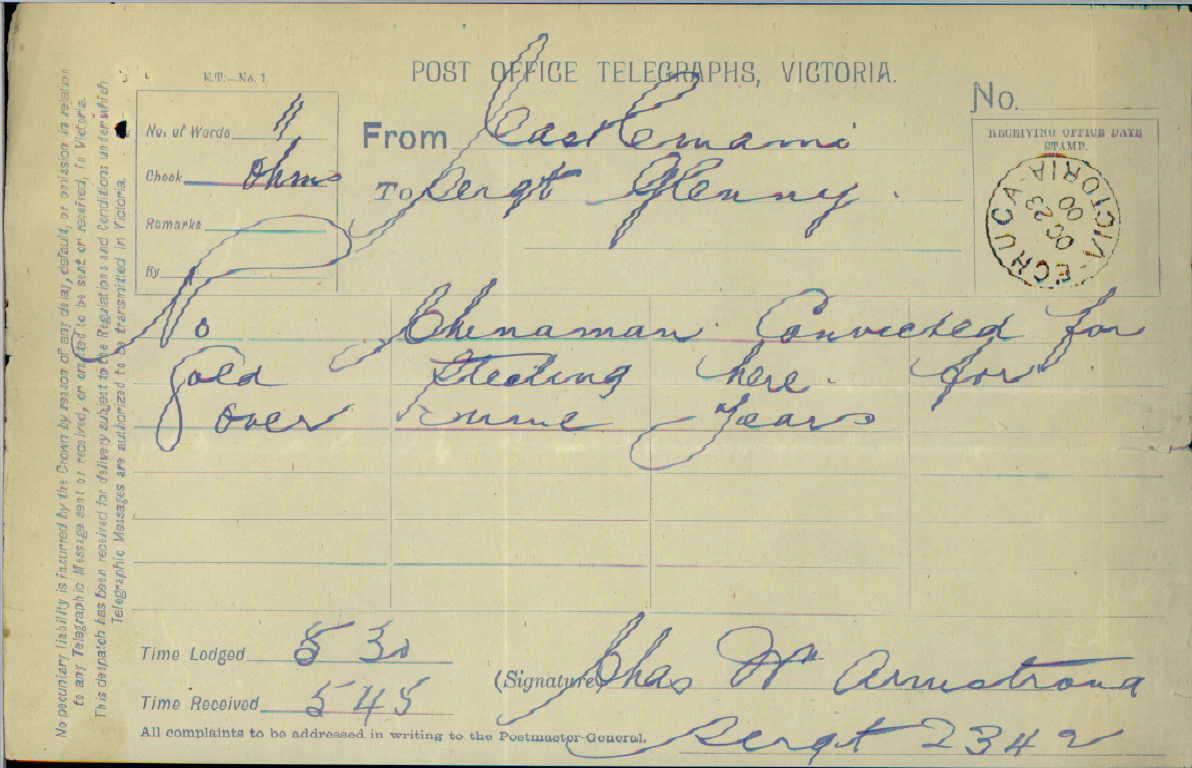 K.T.—No. 1.
POST OFFICE TELEGRAPHS, VICTORIA.
No.
No. of Words 11
Check Ohms
Remarks
By
From Castlemaine
To Sergt Kenny.
RECEIVING OFFICE DATE STAMP.
ECHUCA VICTORIA
OC 23
00
No Chinaman Convicted for
Gold Stealing here. for
over nine years
Time Lodged 5 30
Time Received 5 45
(Signature) Chas W Armstrong
Sergt 2342
All complaints to be addressed in writing to the Postmaster-General.
No pecuniary liability is incurred by the Crown by reason of any delay, default, or omission in relation
to any Telegraphic Message sent or received, or omitted to be sent or received, in Victoria.
This despatch has been received for delivery subject to the Regulations and Conditions under which
Telegraphic Messages are authorized to be transmitted in Victoria.